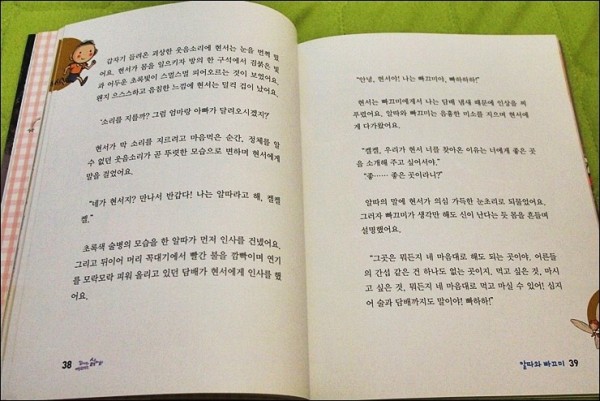 갑자기 들려온 괴상한 웃음소리에 현서는 눈을 번쩍 떴
어요. 현서가 몸을 일으키자 방의 한 구석에서 검붉은 빛
과 어두운 초록빛이 스멀스멀 피어오르는 것이 보였어요.
왠지 으스스하고 음침한 느낌에 현서는 덜컥 겁이 났어요.
‘소리를 지를까? 그럼 엄마랑 아빠가 달려오시겠지?’
현서가 막 소리를 지르려고 마음먹은 순간, 정체를 알
수 없던 웃음소리가 곧 뚜렷한 모습으로 변하며 현서에게
말을 걸었어요.
“네가 현서지? 만나서 반갑다! 나는 알따라고 해, 켈켈
켈.”
초록색 술병의 모습을 한 알따가 먼저 인사를 건넸어요.
그리고 뒤이어 머리 꼭대기에서 빨간 불을 깜빡이며 연기
를 모락모락 피워 올리고 있던 담배가 현서에게 인사를 했
어요.
38
“안녕, 현서야! 나는 빠끄미야, 빠하하하!”
현서는 빠끄미에게서 나는 담배 냄새 때문에 인상을 찌
푸렸어요. 알따와 빠끄미는 음흉한 미소를 지으며 현서에
게 다가왔어요.
“켈켈, 우리가 현서 너를 찾아온 이유는 너에게 좋은 곳
을 소개해 주고 싶어서야.”
“좋…… 좋은 곳이라니?”
알따의 말에 현서가 의심 가득한 눈초리로 되물었어요.
그러자 빠끄미가 생각만 해도 신이 난다는 듯 몸을 흔들며
설명했어요.
“그곳은 뭐든지 네 마음대로 해도 되는 곳이야. 어른들
의 간섭 같은 건 하나도 없는 곳이지. 먹고 싶은 것, 마시
고 싶은 것, 뭐든지 네 마음대로 먹고 마실 수 있어! 심지
어 술과 담배까지도 말이야! 빠하하!”
알따와 빠끄미 39